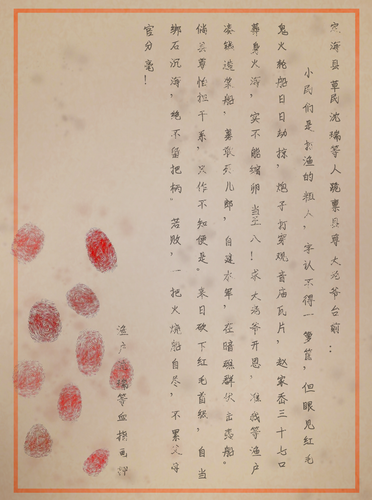 定海县草民沈瑞等人跪禀县尊大老爷台前：
小民们是打渔的粗人，字认不得一箩筐，但眼见红毛
鬼火轮船日日劫掠，炮子打穿观音庙瓦片，赵家岙三十七口
葬身火海，实不能缩卵当王八！求大老爷开恩，准我等渔户
凑钱造桨船，募敢死儿郎，自建水军，在暗礁群伏击番船。
倘县尊怕担干系，只作不知便是。来日砍下红毛首级，自当
绑石沉海，绝不留把柄。若败，一把火烧船自尽，不累父母
官分毫！
渔户沈瑞等血指画押